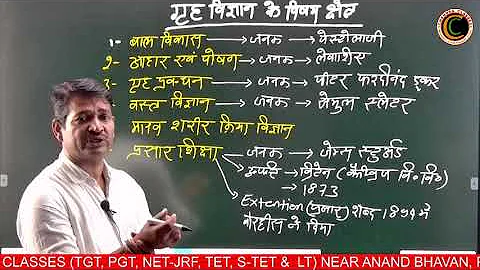 गृह विज्ञान के विषय क्षेत्र
1- बाल विकास → जनक → पेस्टोलाजी
2- आहार एवं पोषण → जनक → लेवाशिए
3- गृह प्रबन्धन → जनक → पीटर फरदीनंद ड्रकर
वस्त्र विज्ञान → जनक → सेमुल स्लेटर
मानव शरीर क्रिया विज्ञान
प्रसार शिक्षा → जनक → जेम्स स्टुअर्ड
→ ब्रिटेन (कैम्ब्रिज वि० वि०)
→ 1873
Extention (प्रसार) शब्द में
ने दिया
CLASSES (TGT, PGT, NET-JRF, TET, S-TET & LT) NEAR ANAND BHAVAN,